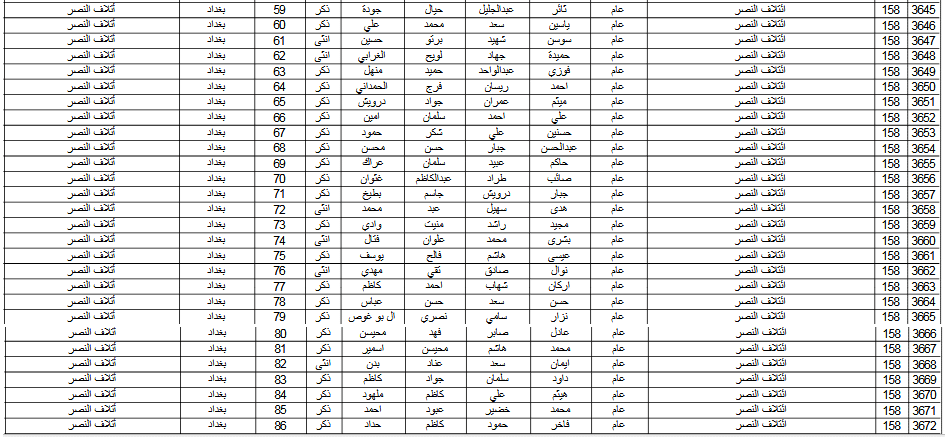 3645 158 ائتلاف النصر عام ثائر عبدالجليل حيال جودة ذكر 59 بغداد أئتلاف النصر
3646 158 ائتلاف النصر عام ياسين سعد محمد علي ذكر 60 بغداد أئتلاف النصر
3647 158 ائتلاف النصر عام سوسن شهيد برتو حسين انثى 61 بغداد أئتلاف النصر
3648 158 ائتلاف النصر عام حميدة جهاد لويج الغرابي انثى 62 بغداد أئتلاف النصر
3649 158 ائتلاف النصر عام فوزي عبدالواحد حميد منهل ذكر 63 بغداد أئتلاف النصر
3650 158 ائتلاف النصر عام احمد ريسان فرج الحمداني ذكر 64 بغداد أئتلاف النصر
3651 158 ائتلاف النصر عام ميثم عمران جواد درويش ذكر 65 بغداد أئتلاف النصر
3652 158 ائتلاف النصر عام علي احمد سلمان امين ذكر 66 بغداد أئتلاف النصر
3653 158 ائتلاف النصر عام حسنين علي شكر حمود ذكر 67 بغداد أئتلاف النصر
3654 158 ائتلاف النصر عام عبدالحسن جبار حسن محسن ذكر 68 بغداد أئتلاف النصر
3655 158 ائتلاف النصر عام حاكم عبيد سلمان عراك ذكر 69 بغداد أئتلاف النصر
3656 158 ائتلاف النصر عام صائب طراد عبدالكاظم غثوان ذكر 70 بغداد أئتلاف النصر
3657 158 ائتلاف النصر عام جبار درويش جاسم بطيخ ذكر 71 بغداد أئتلاف النصر
3658 158 ائتلاف النصر عام هدى سهيل عبد محمد انثى 72 بغداد أئتلاف النصر
3659 158 ائتلاف النصر عام مجيد راشد منيت وادي ذكر 73 بغداد أئتلاف النصر
3660 158 ائتلاف النصر عام بشرى محمد علوان قتال انثى 74 بغداد أئتلاف النصر
3661 158 ائتلاف النصر عام عيسى هاشم فالح يوسف ذكر 75 بغداد أئتلاف النصر
3662 158 ائتلاف النصر عام نوال صادق تقي مهدي انثى 76 بغداد أئتلاف النصر
3663 158 ائتلاف النصر عام اركان شهاب احمد كاظم ذكر 77 بغداد أئتلاف النصر
3664 158 ائتلاف النصر عام حسن سعد حسن عباس ذكر 78 بغداد أئتلاف النصر
3665 158 ائتلاف النصر عام نزار سامي نصري ال بو غوص ذكر 79 بغداد أئتلاف النصر
3666 158 ائتلاف النصر عام عادل صابر فهد محيسن ذكر 80 بغداد أئتلاف النصر
3667 158 ائتلاف النصر عام محمد هاشم محيسن اسمير ذكر 81 بغداد أئتلاف النصر
3668 158 ائتلاف النصر عام ايمان سعد عناد بدن انثى 82 بغداد أئتلاف النصر
3669 158 ائتلاف النصر عام داود سلمان جواد كاظم ذكر 83 بغداد أئتلاف النصر
3670 158 ائتلاف النصر عام هيثم علي كاظم ملهود ذكر 84 بغداد أئتلاف النصر
3671 158 ائتلاف النصر عام محمد خضير عبود احمد ذكر 85 بغداد أئتلاف النصر
3672 158 ائتلاف النصر عام فاخر حمود كاظم حداد ذكر 86 بغداد أئتلاف النصر